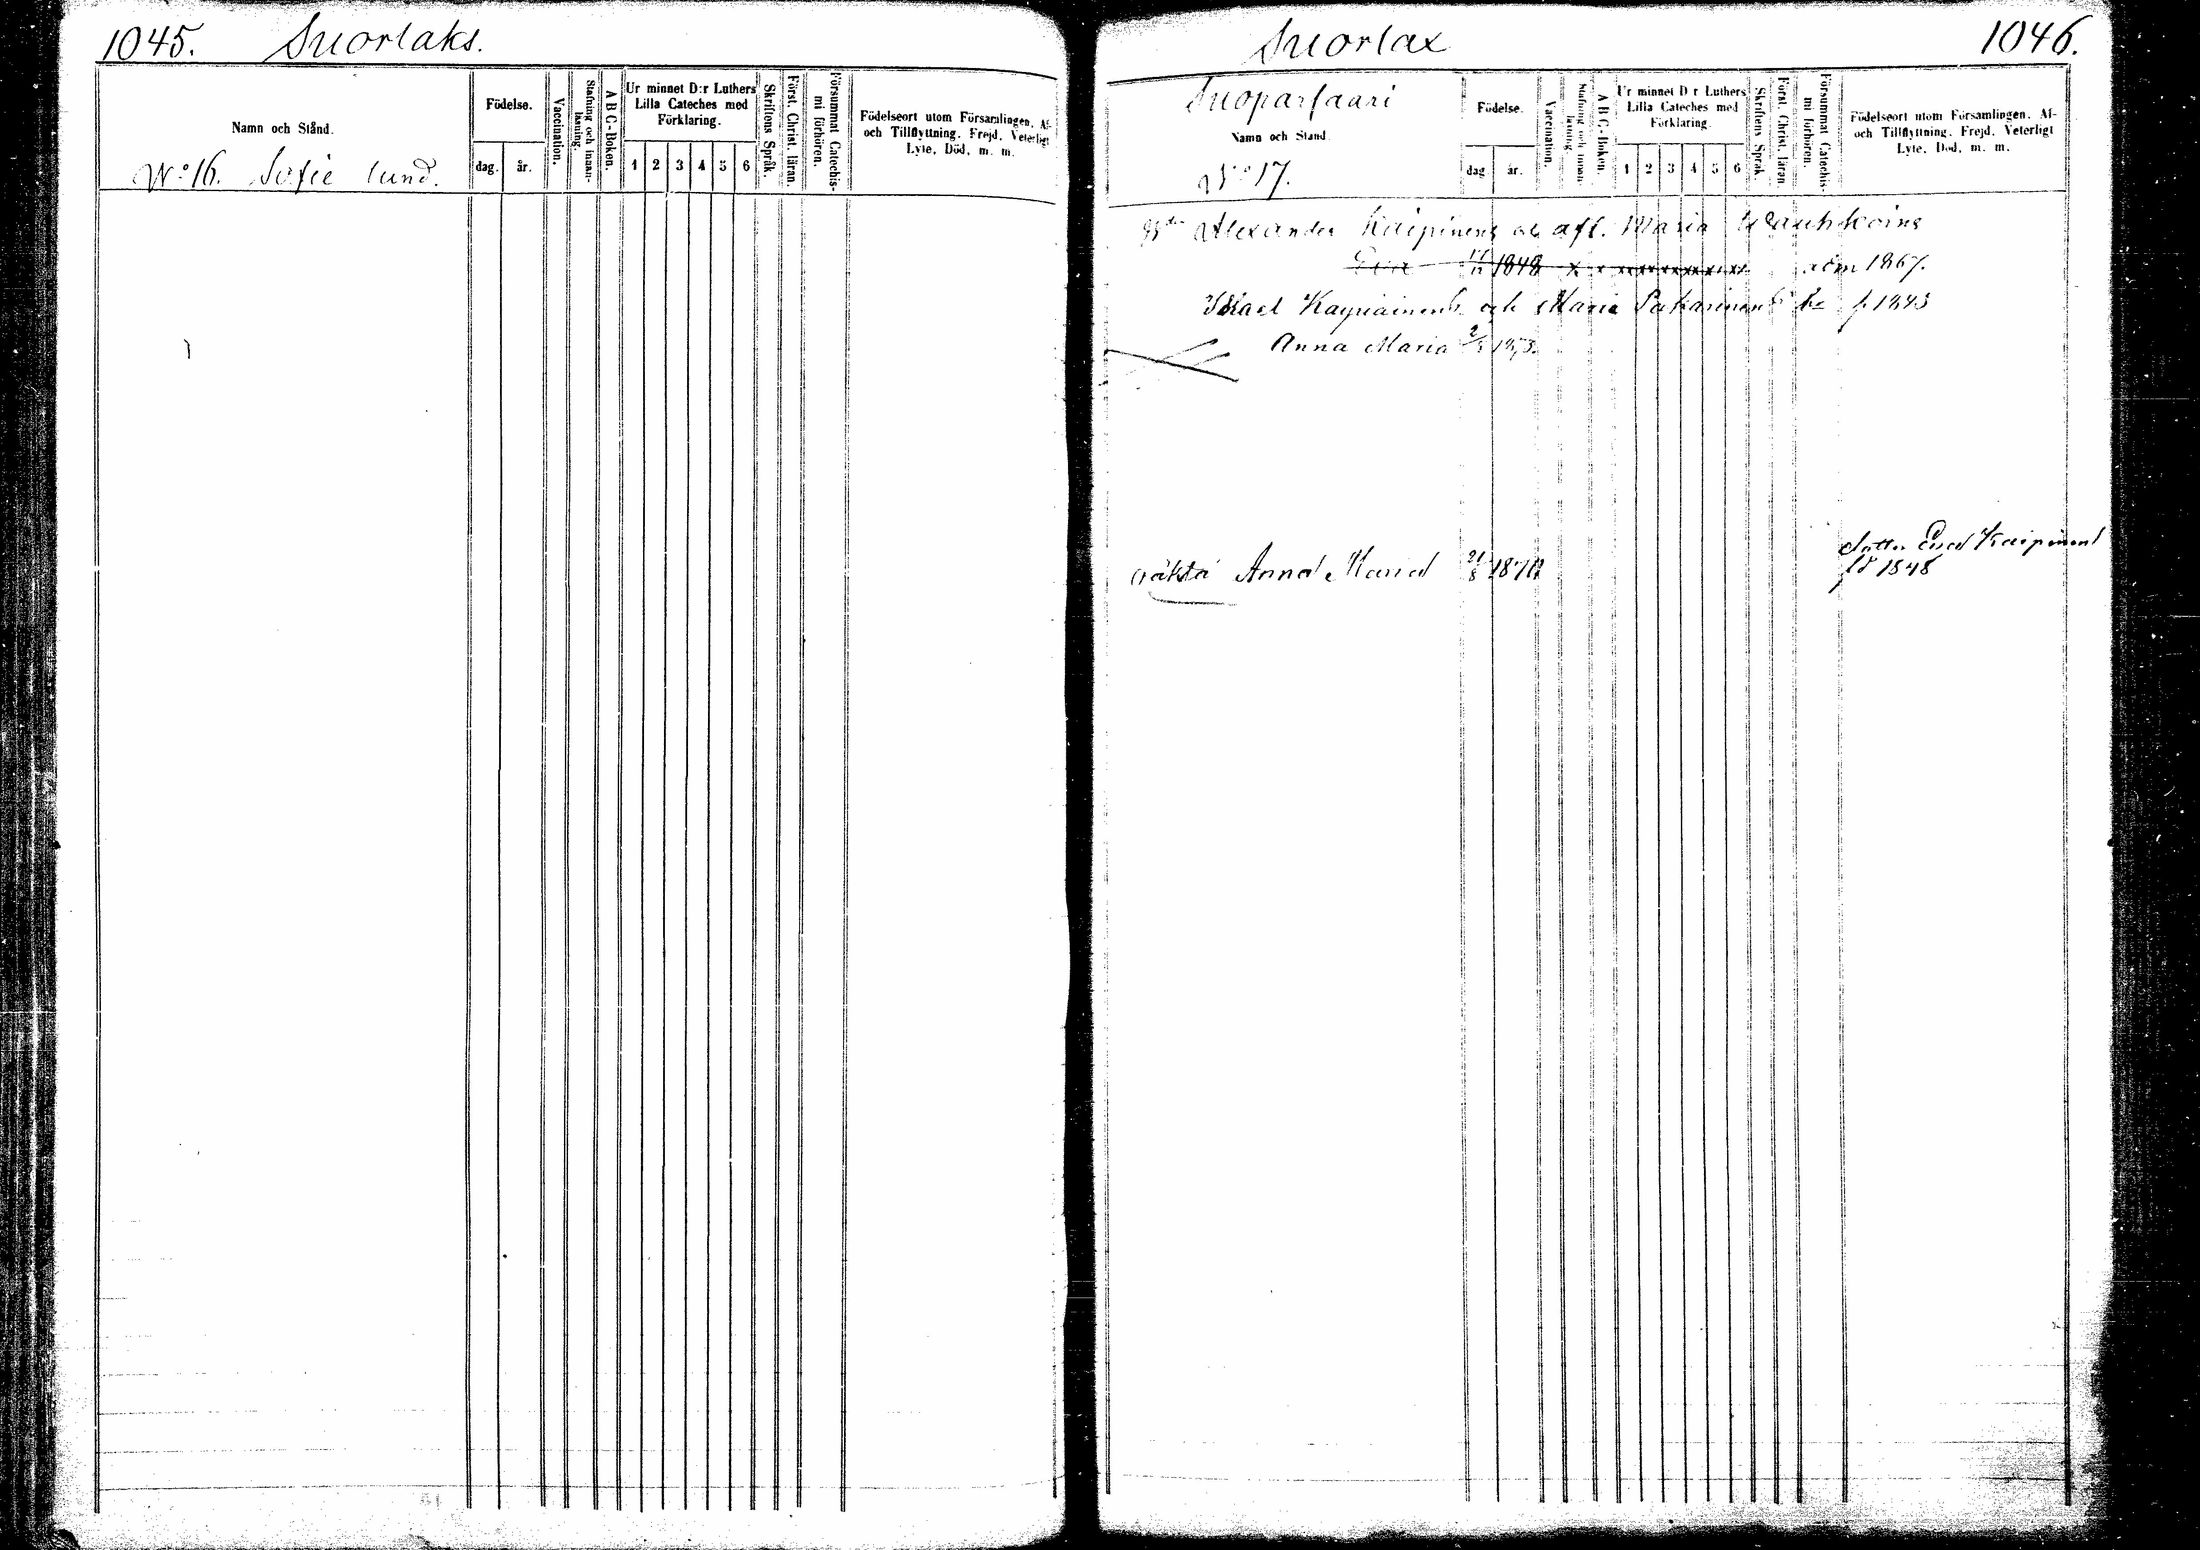 1045. Suorlaks.
Namn och Stånd.
No 16. Sofie lund.
Födelse.
dag. år.
Vaccination.
Stafning och innanläsning.
A B C-Boken.
Ur minnet D:r Luthers
Lilla Cateches med
Förklaring.
1 2 3 4 5 6
Skriftens Språk.
Först. Christ. läran.
Försummat Catechismi förhören.
Födelseort utom Församlingen, Af-
och Tillflyttning. Frejd. Veterligt
Lyte, Död, m. m.
Suorlax 1046.
Suoparsaari
Namn och Stånd.
No 17.
Födelse.
dag år.
Vaccination.
Stafning och innanläsning
A B C-Boken.
Ur minnet D r Luthers
Lilla Cateches med
Förklaring.
1 2 3 4 5 6
Skriftens Språk.
Först. Christ. läran
Försummat Catechismi förhören.
Födelseort utom Församlingen. Af-
och Tillflyttning. Frejd. Veterligt
Lyte, Död, m. m.
Alexander Kaipinens och afl. Maria
Eva 1848 x x xx xx xx xx xx xx adm 1867.
och Maria f. 1843
Anna Maria 1873.
oäkta Anna Maria 21/8 1870
Kaipinens
fd 1848